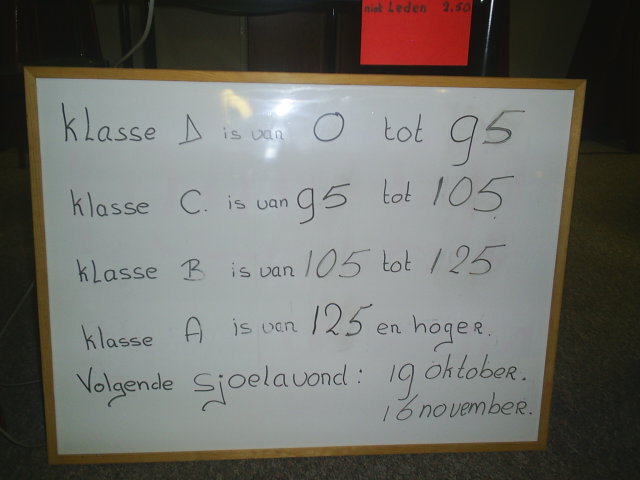 niet Leden 2.50
klasse D is van 0 tot 95
klasse C. is van 95 tot 105
klasse B is van 105 tot 125
klasse A is van 125 en hoger.
Volgende sjoelavond: 19 oktober.
16 november.